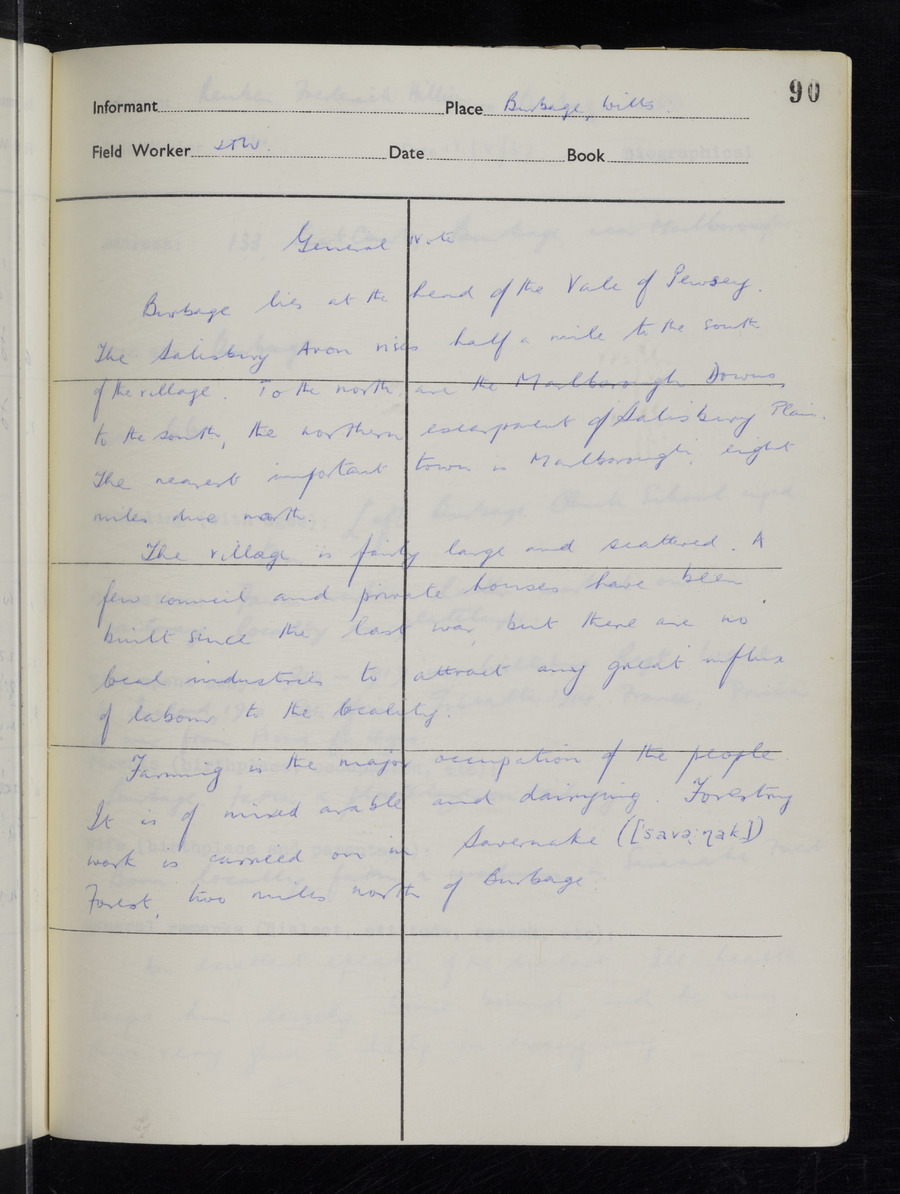 90
Informant Place Burbage, Wilts.
Field Worker Date Book
General Note
Burbage lies at the head of the Vale of Pewsey.
The Salisbury Avon rises half a mile to the south
of the village. To the north, are the Marlborough Downs,
to the south, the northern escarpment of Salisbury Plain.
The nearest important town is Marlborough, eight
miles due north.
The village is fairly large and scattered. A
few council and private houses have been
built since the last war, but there are no
local industries to attract any great influx
of labour to the locality.
Farming is the major occupation of the people.
It is of mixed arable and dairying. Forestry
work is carried on in Savernake
Forest, two miles north of Burbage.